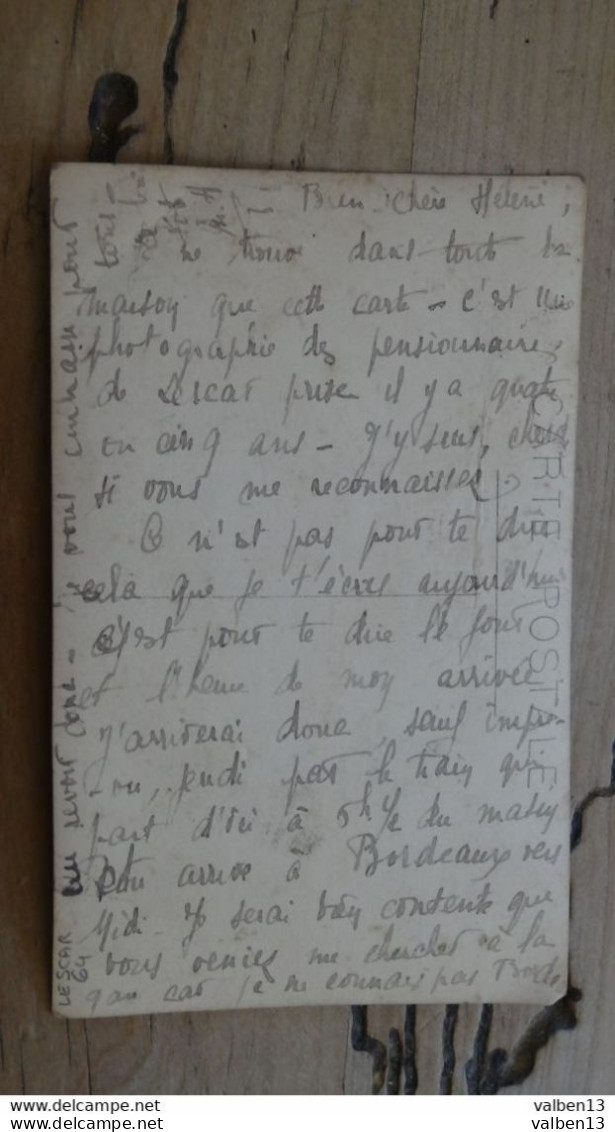 Bien chère Hélène,
ne trouve dans toute la
maison que cette carte - c'est une
photographie des pensionnaires
de Lescar prise il y a quatre
ou cinq ans - J'y suis, cherche
si vous me reconnaissez
Ce n'est pas pour te dire
cela que je t'écris aujourd'hui
c'est pour te dire le jour
et l'heure de mon arrivée
J'arriverai donc, sauf impré-
-vu, jeudi par le train qui
part d'ici à 5h 1/2 du matin
et arrive à Bordeaux vers
Midi. Je serai bien contente que
vous veniez me chercher à la
gare car je ne connais pas Bord
au revoir donc - je vous embrasse pour
tous
CARTE POSTALE
LESCAR
64
valben13
valben13